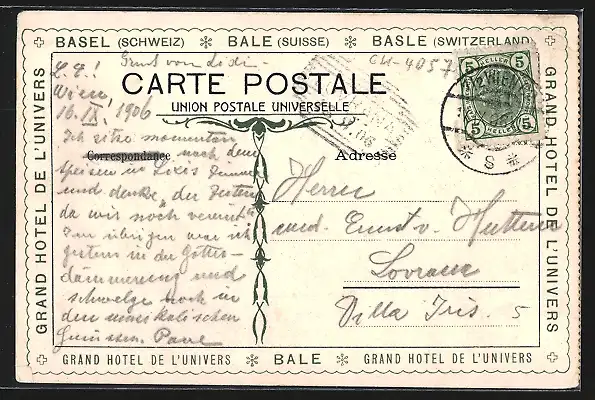 BASEL (SCHWEIZ) BALE (SUISSE) BASLE (SWITZERLAND)
Gruss von Didi
CH-4057
CARTE POSTALE
UNION POSTALE UNIVERSELLE
Correspondance
Adresse
L. E.!
Wien,
16. IX. 1906
Ich sitze momentan
nach dem
Speisen in
und denke, der Zeiten
da wir noch vereint
Im übrigen war ich
gestern in der Götter-
dämmerung und
schwelge noch in
den musikalischen
Genüssen.
Herrn
med. Ernst v. Huttern
Lovrana
Villa Iris. 5
5 HELLER 5
5 HELLER 5
WIEN
* S *
06
GRAND HOTEL DE L'UNIVERS
GRAND HOTEL DE L'UNIVERS
GRAND HOTEL DE L'UNIVERS BALE GRAND HOTEL DE L'UNIVERS